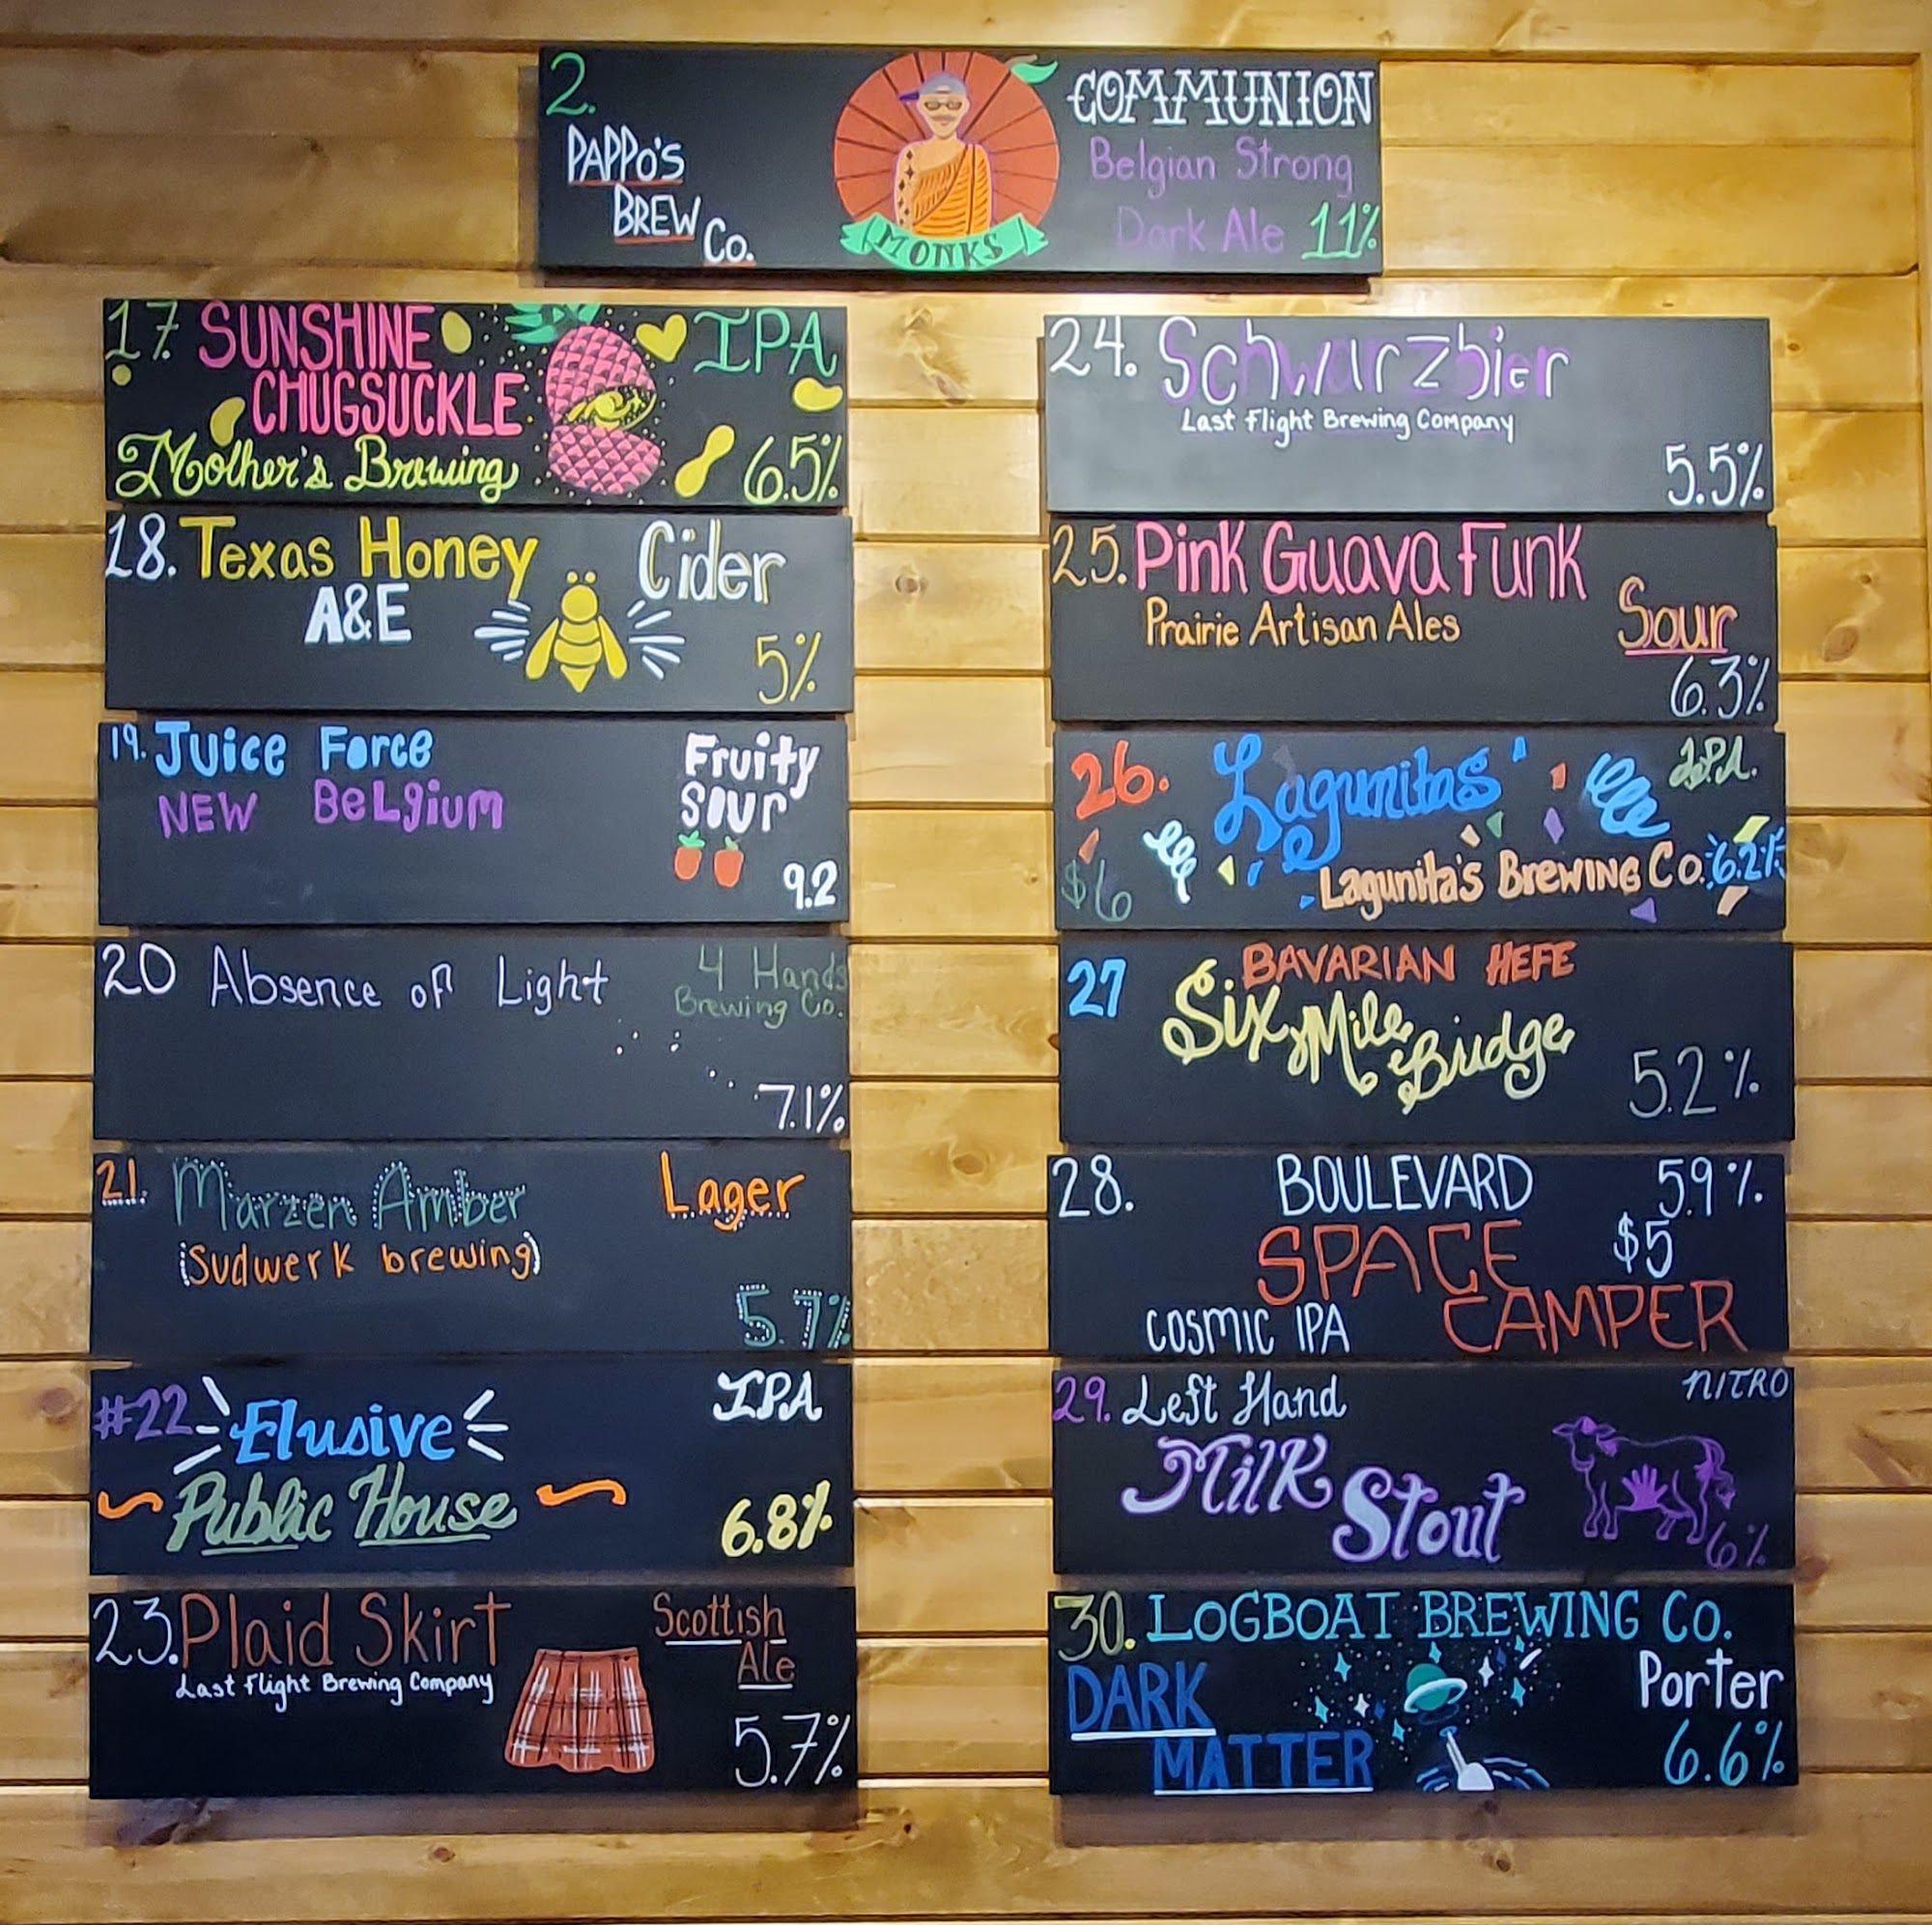 2.
PAPPO'S
BREW
Co.
MONKS
COMMUNION
Belgian Strong
Dark Ale 11%
17. SUNSHINE
CHUGSUCKLE
Mother's Brewing
IPA
6.5%
18. Texas Honey
A&E
Cider
5%
19. Juice Force
NEW BeLgium
Fruity
Sour
9.2
20 Absence of Light
4 Hands
Brewing Co.
7.1%
21. Marzen Amber
(Sudwerk brewing)
Lager
5.7%
#22 Elusive
Public House
IPA
6.8%
23. Plaid Skirt
Last Flight Brewing Company
Scottish
Ale
5.7%
24. Schwarzbier
Last Flight Brewing Company
5.5%
25. Pink Guava Funk
Prairie Artisan Ales
Sour
6.3%
26. Lagunitas
I.P.A.
$6
Lagunita's Brewing Co. 6.2%
27
BAVARIAN HEFE
Six Mile Bridge
5.2%
28. BOULEVARD 5.9%
SPACE $5
CAMPER
COSMIC IPA
29. Left Hand
NITRO
Milk Stout
6%
30. LOGBOAT BREWING Co.
DARK
MATTER
Porter
6.6%